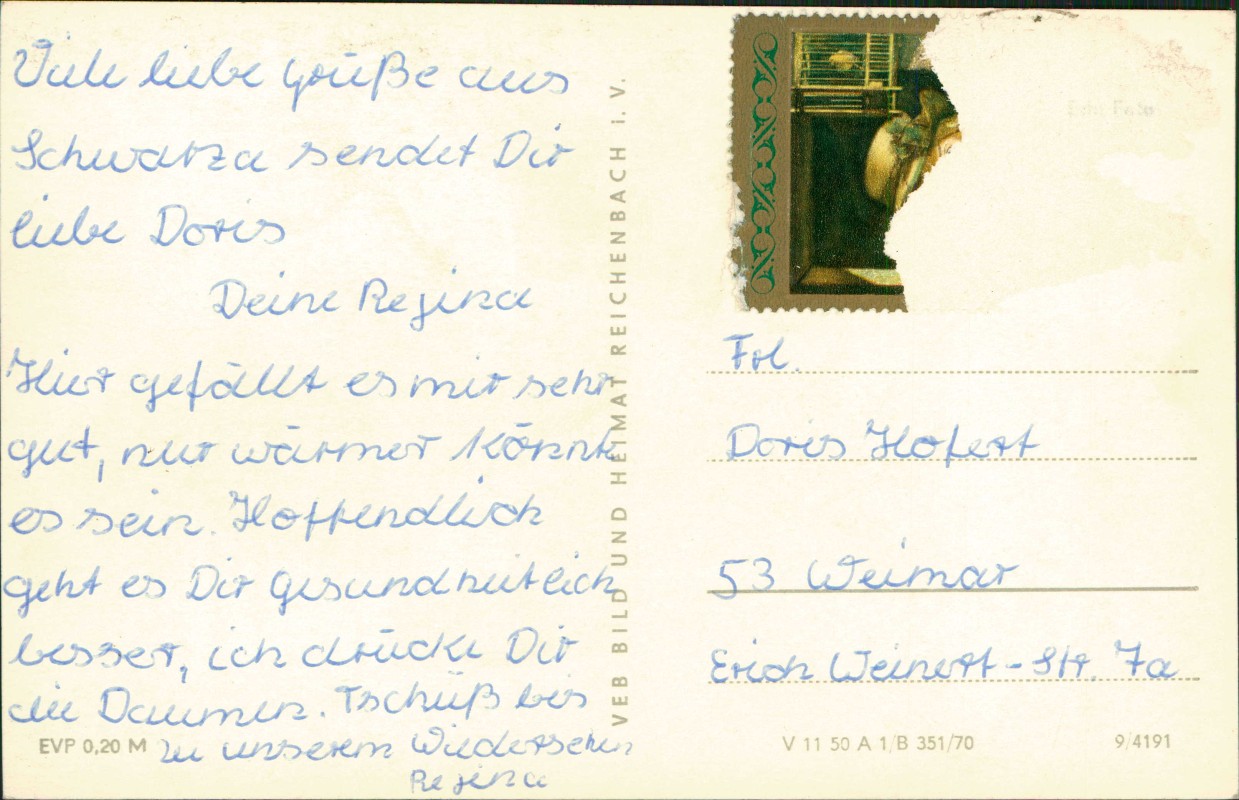 Viele liebe Grüße aus
Schwarza sendet Dir
liebe Doris
Deine Regina
Hier gefällt es mir sehr
gut, nur wärmer könnte
es sein. Hoffendlich
geht es Dir gesundheitlich
besser, ich drücke Dir
die Daumen. Tschüß bis
zu unserem Wiedersehen
Regina
EVP 0,20 M
VEB BILD UND HEIMAT REICHENBACH I. V.
Echt Foto
Frl.
Doris Hofert
53 Weimar
Erich Weinert-Str. 7a
V 11 50 A 1/B 351/70
9/4191